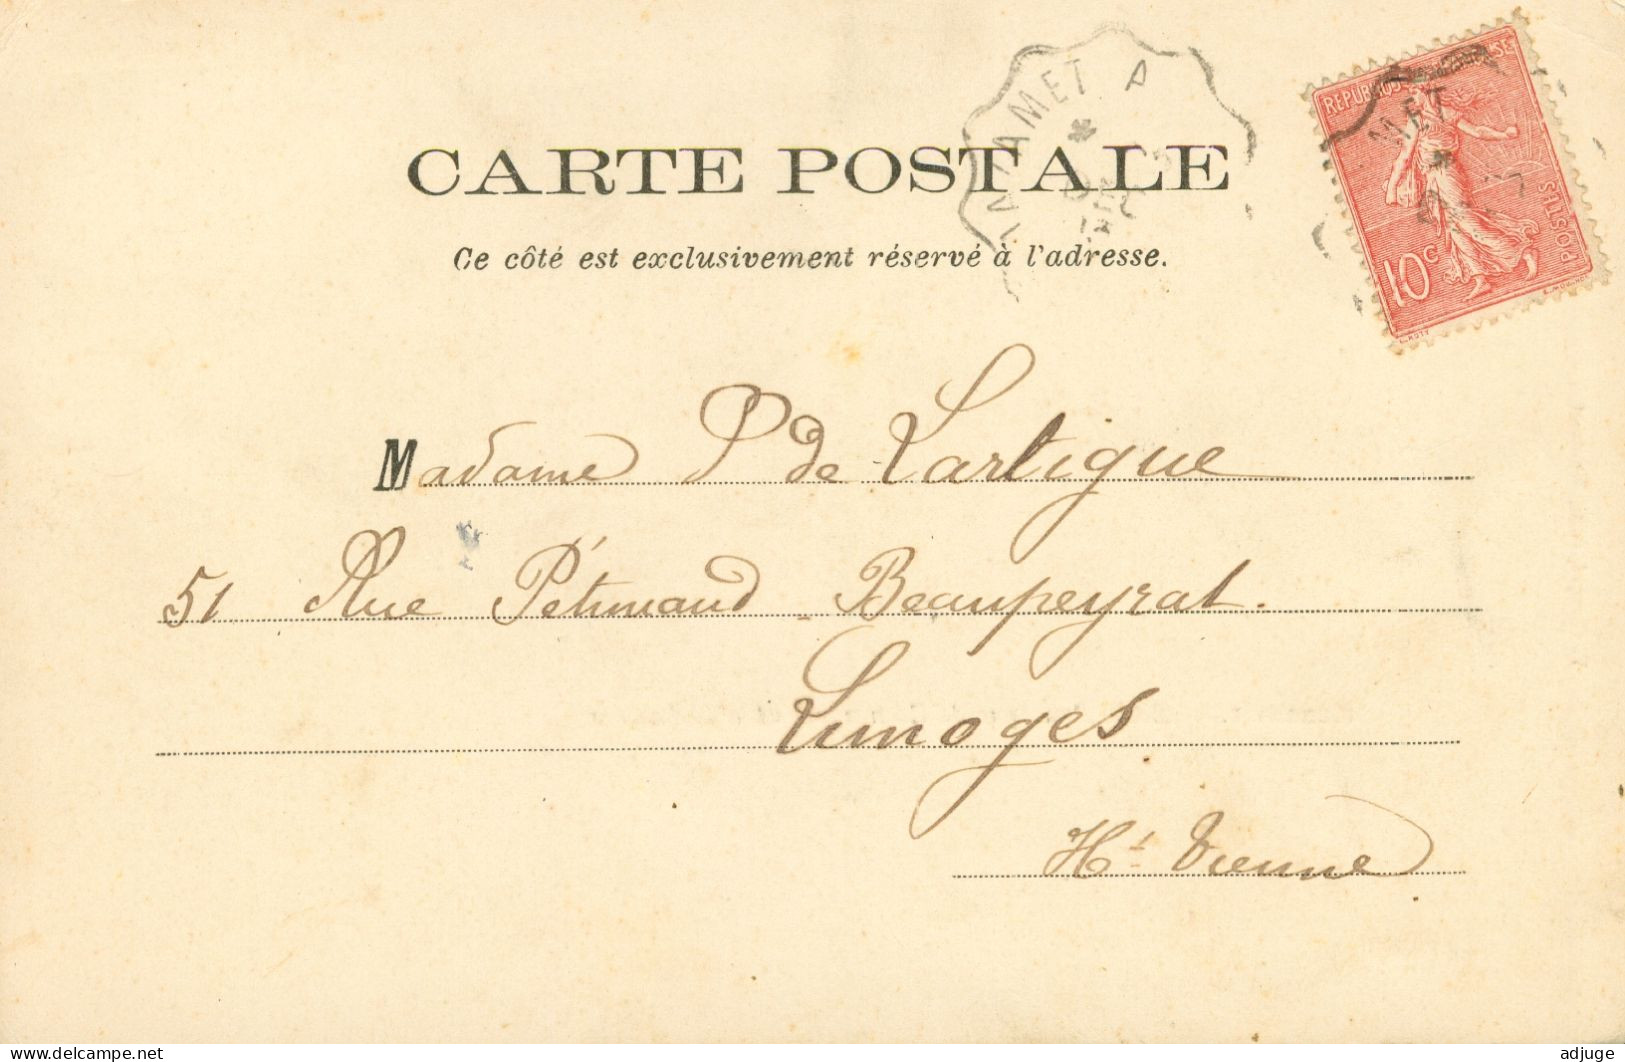 CARTE POSTALE
Ce côté est exclusivement réservé à l'adresse.
REPUBLIQUE FRANÇAISE
POSTES
10c
Madame P de Lartigue
51 Rue Pétiniaud - Beaupeyrat.
Limoges
Hte Vienne
Delcampe.net
adjuge